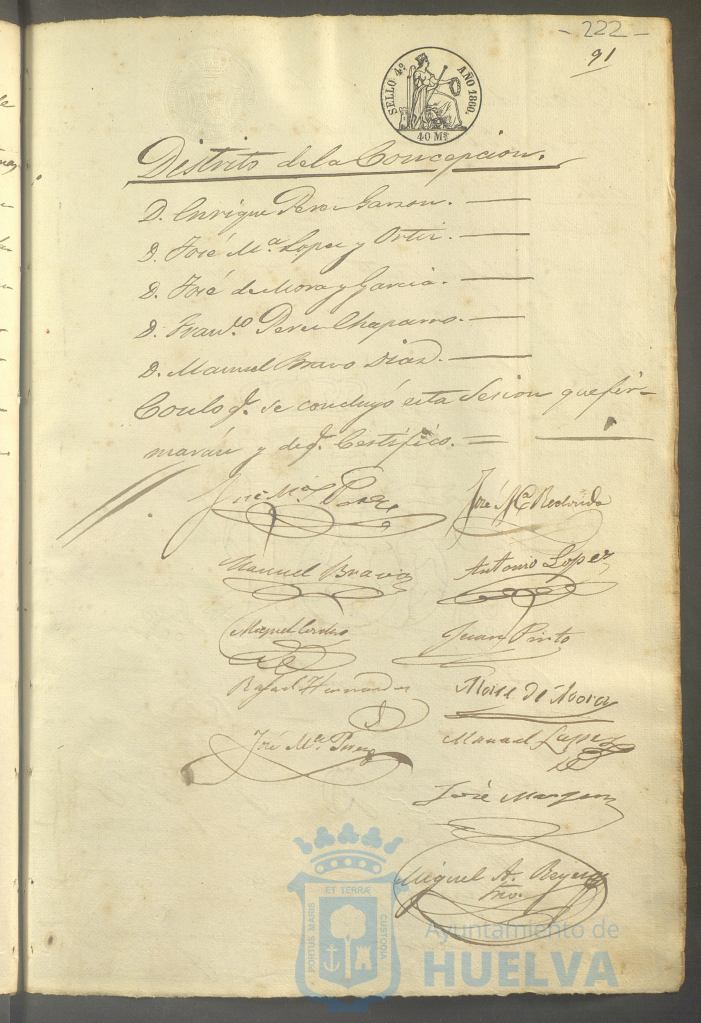 - 222 -
91
SELLO 4º AÑO 1860.
40 Ms
Distrito de la Concepcion.
D. Enrique Perez Garzon.
D. José Mª Lopez y Ortiz.
D. José de Mora y Garcia.
D. Franco Perez Chaparro.
D. Manuel Bravo Diaz.
Con lo q. se concluyó esta Sesion que fir-
maran y de q. Certifico. =
José Mª Perez José Mª Redondo
Manuel Bravo Antonio Lopez
Miguel Cordero Juan Pinto
Rafael Hernandez José de Mora
José Mª Perez Manuel Lopez
José
Miguel A. Bejar
Srio.
ET TERRÆ
PORTUS MARIS
CUSTODIA
Ayuntamiento de
HUELVA